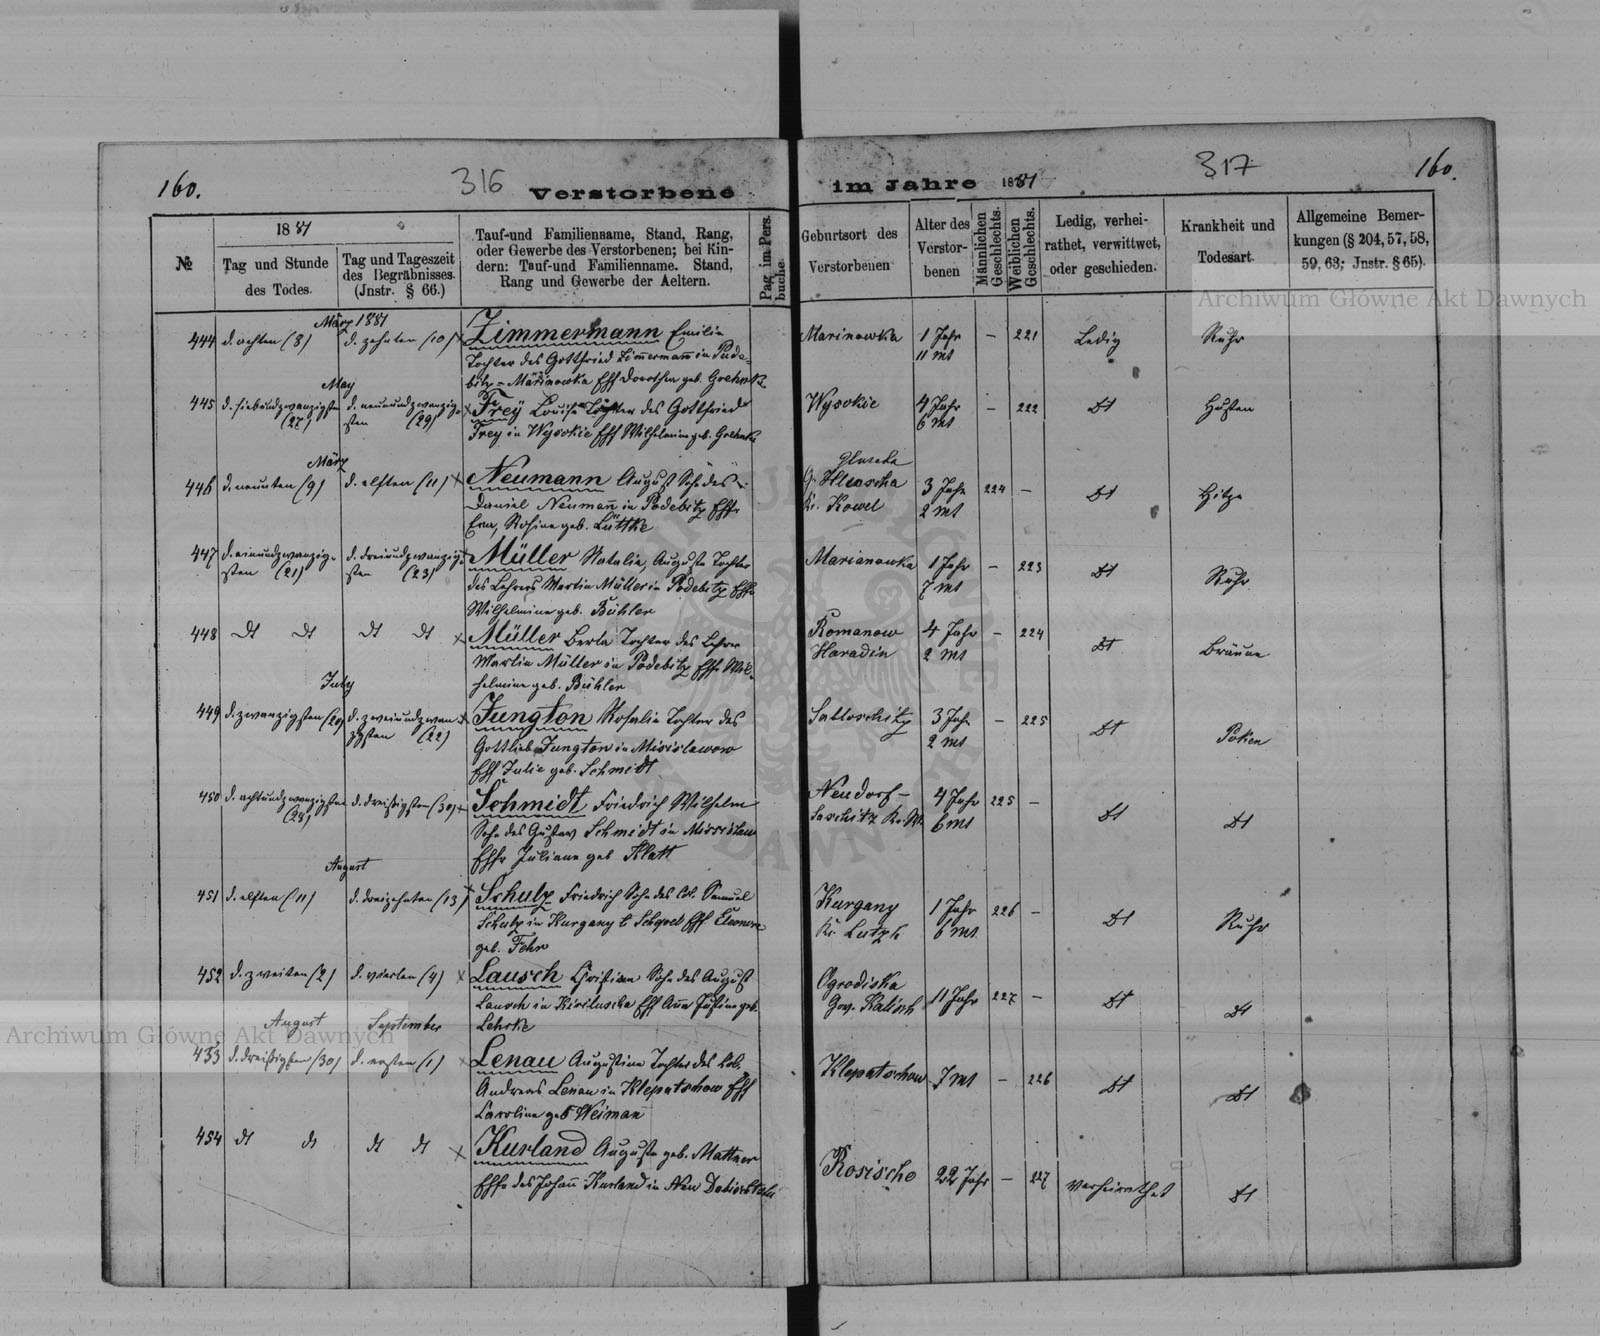 160.
316
Verstorbene
im Jahre 1881
317
160.
№
1881
Tag und Stunde
des Todes.
Tag und Tageszeit
des Begräbnisses.
(Jnstr. § 66.)
Tauf-und Familienname, Stand, Rang,
oder Gewerbe des Verstorbenen; bei Kin-
dern: Tauf-und Familienname. Stand,
Rang und Gewerbe der Aeltern.
Pag im Pers.
buche.
Geburtsort des
Verstorbenen
Alter des
Verstor-
benen
Männlichen
Geschlechts.
Weiblichen
Geschlechts.
Ledig, verhei-
rathet, verwittwet,
oder geschieden.
Krankheit und
Todesart.
Allgemeine Bemer-
kungen (§ 204, 57, 58,
59, 63; Jnstr. § 65).
Archiwum Główne Akt Dawnych
März 1881
444 d. achten (8) d. zehnten (10) x Zimmermann Emilie Marinowka 1 Jahr – 221 Ledig Ruhr
Tochter des Gottfried Zimmermann in Pode- 11 mt
bitz - Marinowka Dorothea geb.
May
445 d. siebundzwanzigsten d. neunundzwanzig- x Frey Louise Tochter des Gottfried Wysokie 4 Jahr – 222 dt Husten
(27) sten (29) Frey in Wysokie Wilhelmine geb. 6 mt
März
446 d. neunten (9) d. elften (11) x Neumann August Sohn des 3 Jahr 224 – dt Hitze
Daniel Neumann in Podebitz Kr. Kowel 2 mt
Rosine geb. Lüttke
447 d. einundzwanzig- d. dreiundzwanzig- x Müller Natalie, Auguste Tochter Marianowka 1 Jahr – 223 dt Ruhr
sten (21) sten (23) des Lehrers Martin Müller in Podebitz 7 mt
Wilhelmine geb. Bühler
448 dt dt dt dt x Müller Berta Tochter des Lehrer Romanow 4 Jahr – 224 dt Bräune
Martin Müller in Podebitz Haradin 2 mt
helmine geb. Bühler
July
449 d. zwanzigsten (20) d. zweiundzwan- x Jungton Rosalie Tochter des 3 Jahr – 225 dt Poken
zigsten (22) Gottlieb Jungton in Misislawow 2 mt
Julie geb. Schmidt
450 d. achtundzwanzigsten d. dreißigsten (30) x Schmidt Friedrich Wilhelm Neudorf- 4 Jahr 225 – dt dt
(28) Sohn des Gustav Schmidt in 6 mt
Juliane geb Klatt
August
451 d. elften (11) d. dreizehnten (13) x Schulz Friedrich Sohn des Col. Samuel Kurgany 1 Jahr 226 – dt Ruhr
Schulz in Kurgany Eleonore Kr. Lutzk 6 mt
geb. Fehr
452 d. zweiten (2) d. vierten (4) x Lausch Christian Sohn des August Ogrodiska 11 Jahr 227 – dt dt
Lausch in Anna Justine geb. Gov. Kalisch
Lehrke
August September
Archiwum Główne Akt Dawnych
453 d. dreißigsten (30) d. ersten (1) x Lenau Augustine Tochter des Col. Klepatschow 7 mt – 226 dt dt
Andreas Lenau in Klepatschow
Caroline geb Weiman
454 dt dt dt dt x Kurland Auguste geb. Mattner Rosische 22 Jahr – 227 verheirathet dt
des Johann Kurland in Neu